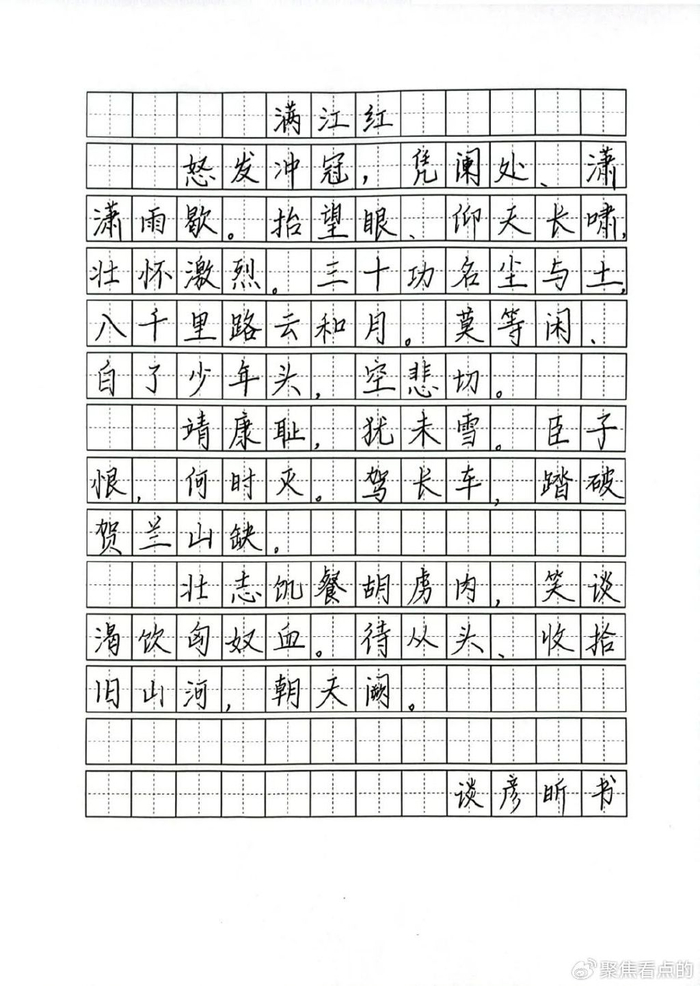 满江红
怒发冲冠，凭阑处、潇
潇雨歇。抬望眼、仰天长啸，
壮怀激烈。三十功名尘与土，
八千里路云和月。莫等闲、
白了少年头，空悲切。
靖康耻，犹未雪。臣子
恨，何时灭。驾长车，踏破
贺兰山缺。
壮志饥餐胡虏肉，笑谈
渴饮匈奴血。待从头、收拾
旧山河，朝天阙。
谈彦昕书
@聚焦看点的